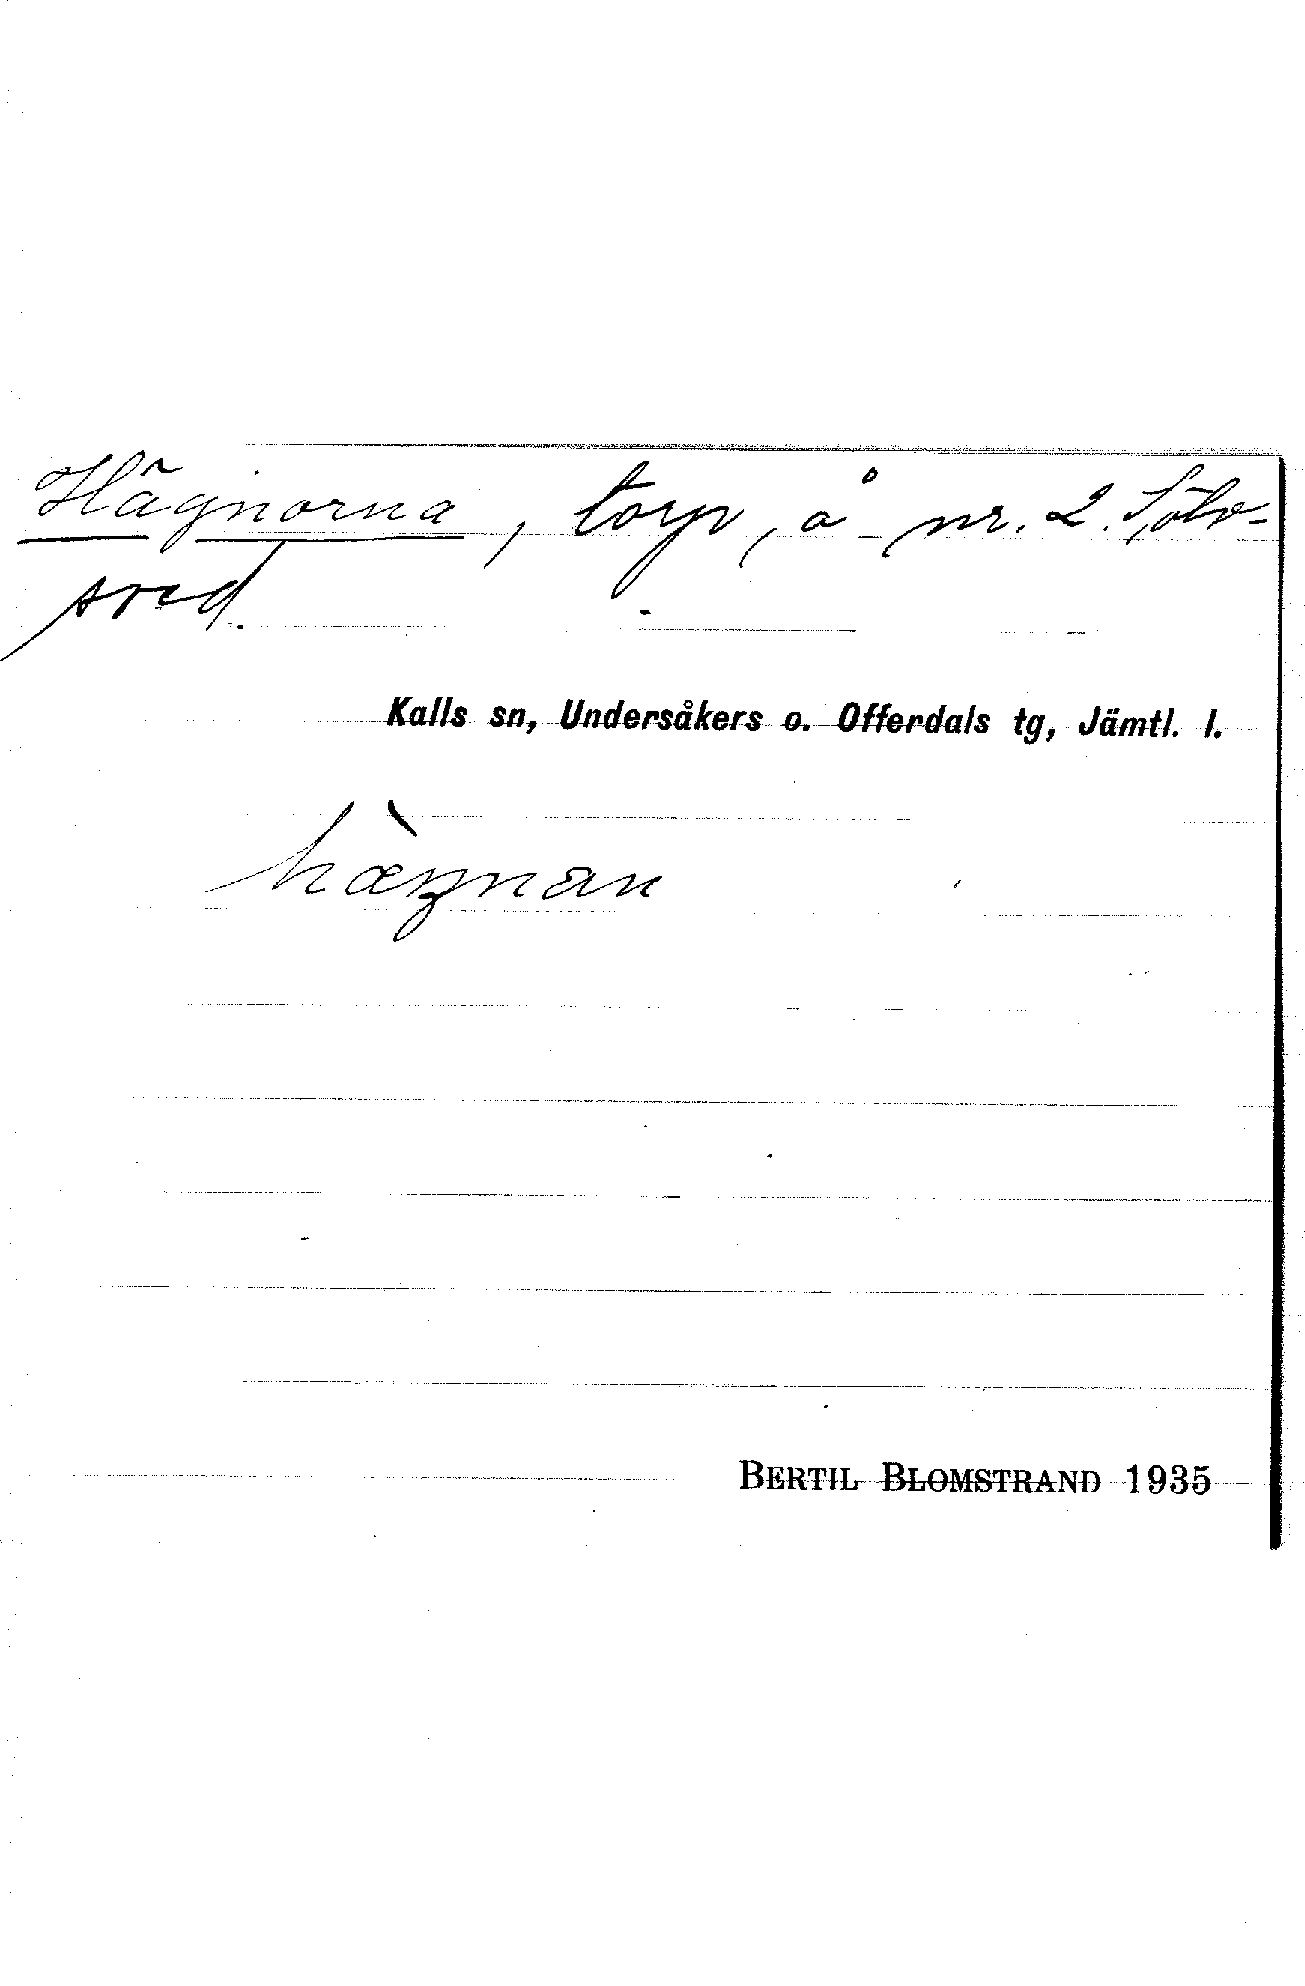 Hägnorna, torp, å nr. 2. Sölv-
sved.
Kalls sn, Undersåkers o. Offerdals tg, Jämtl. l.
hæ̀gnan
BERTIL BLOMSTRAND 1935